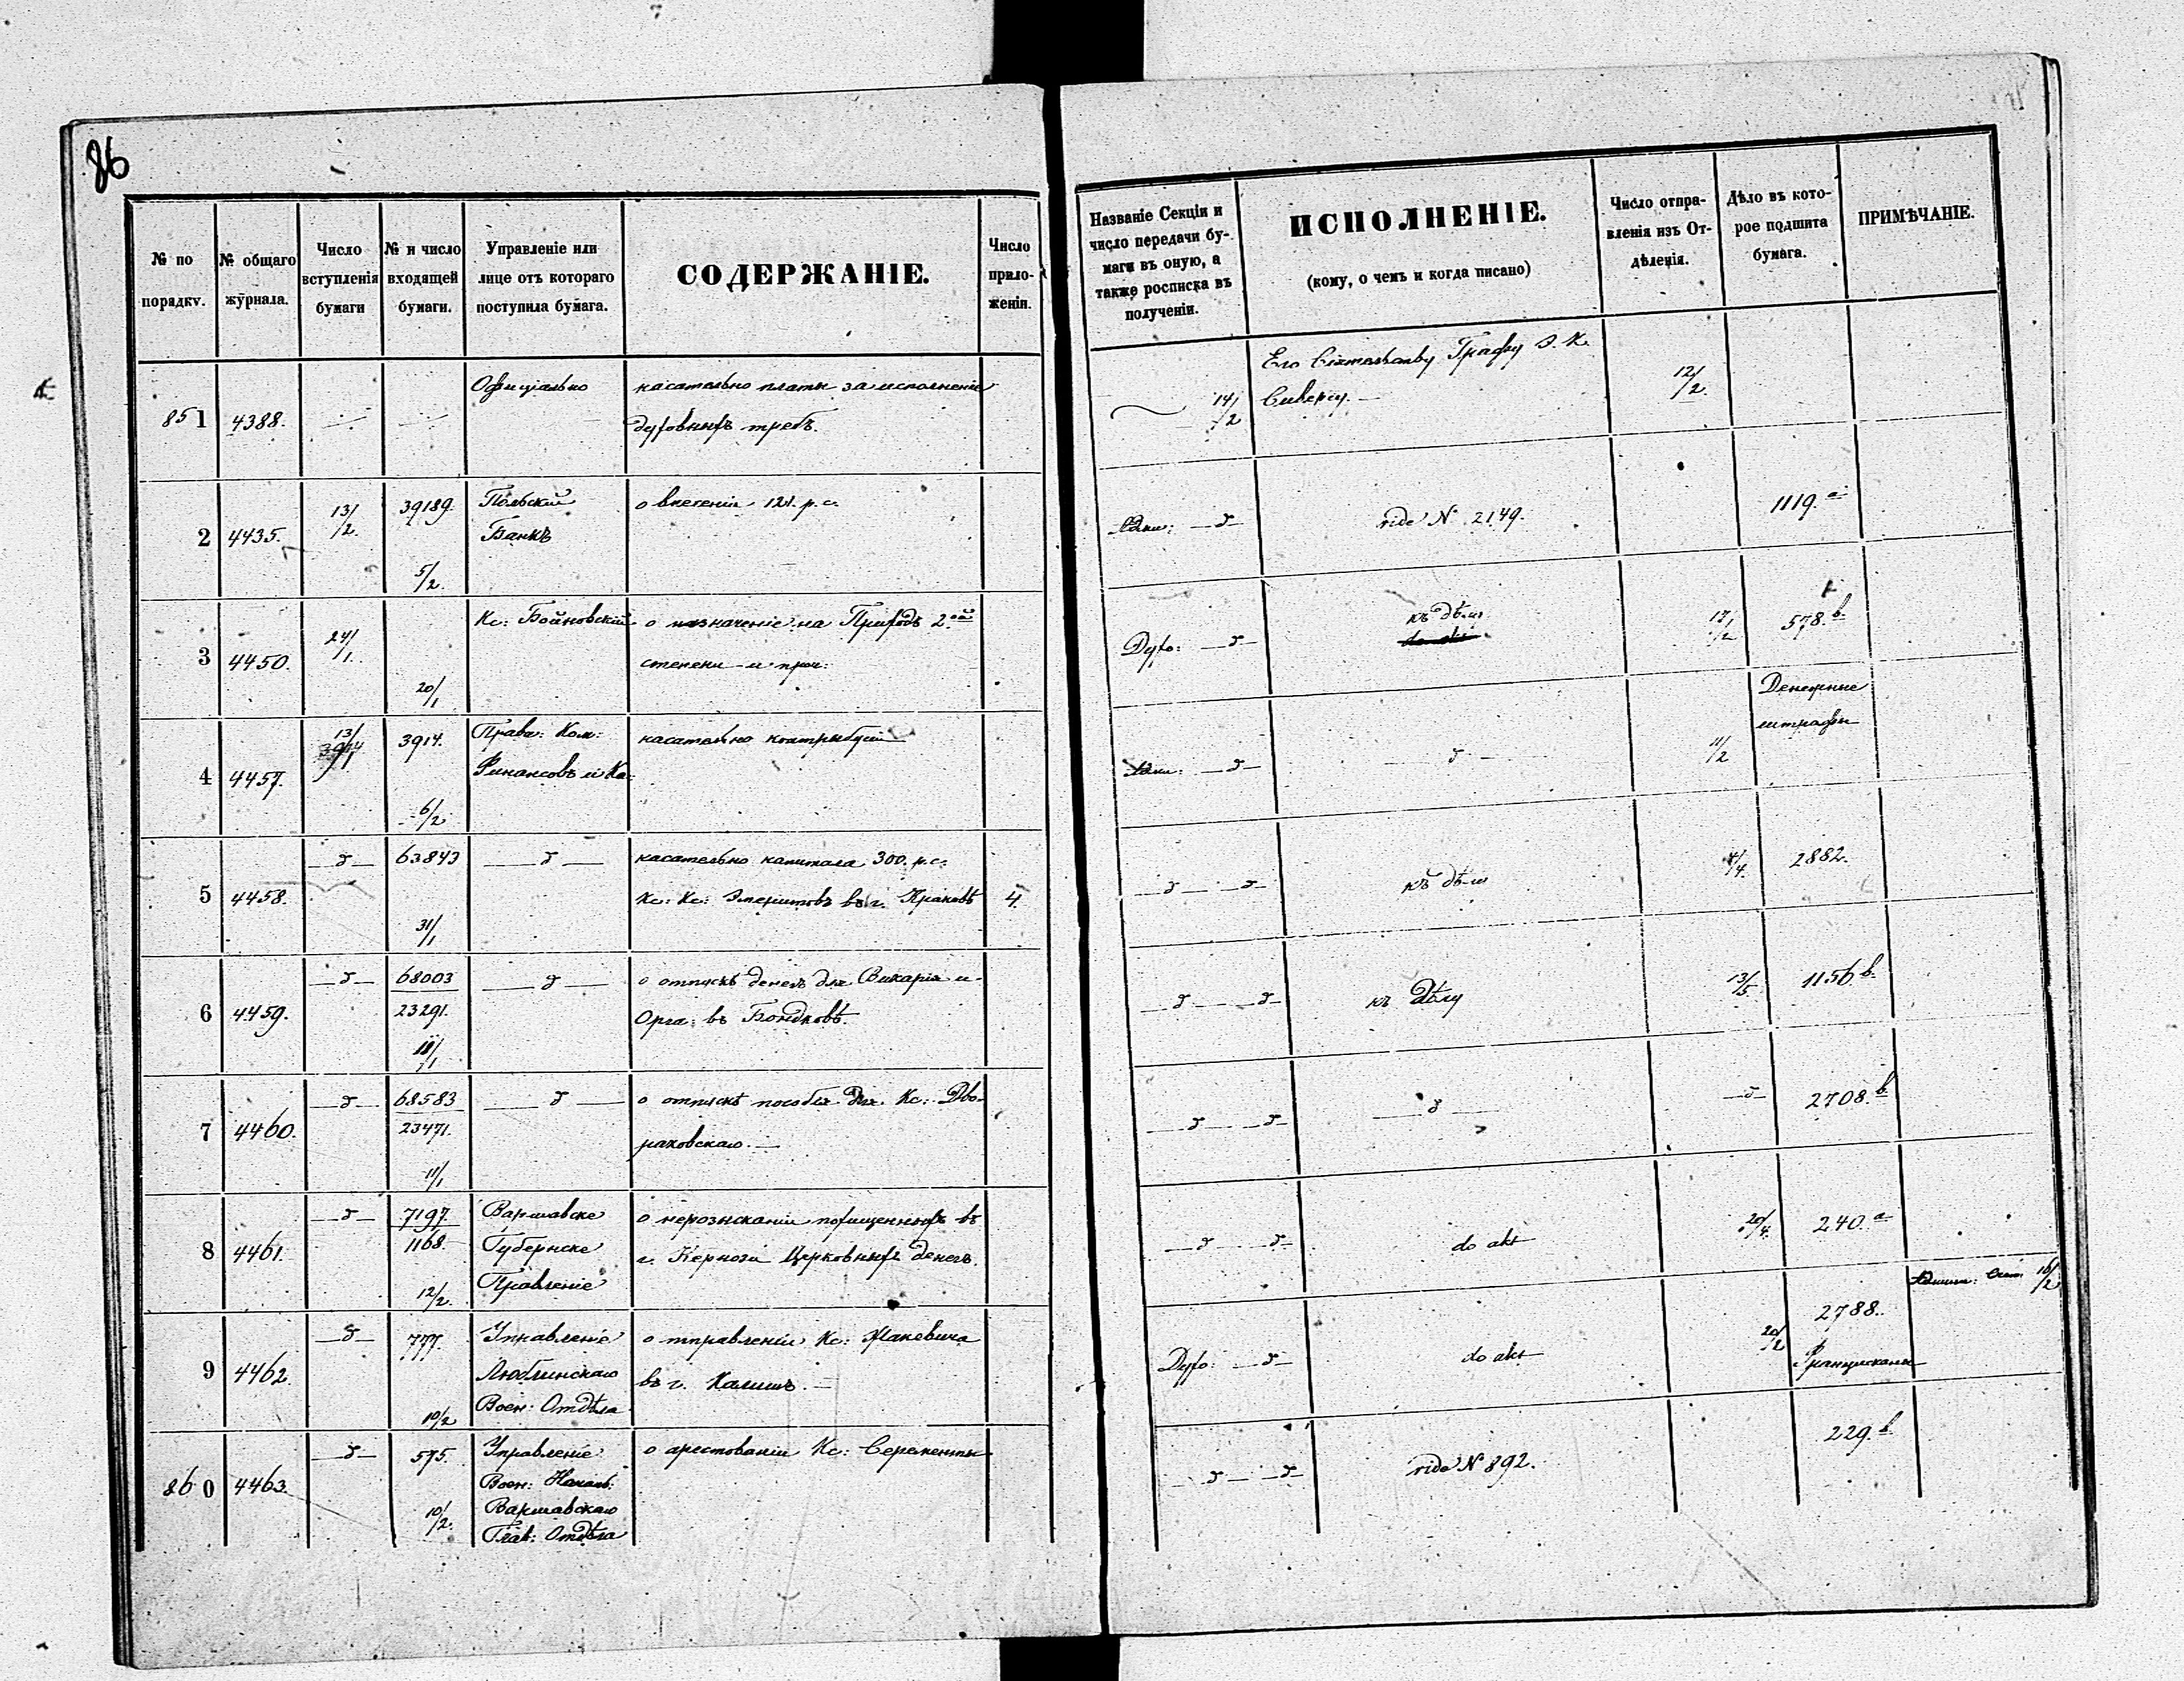 86
№ по порядку.
№ общаго журнала.
Число вступленія бумаги
№ и число входящей бумаги.
Управленіе или лице отъ котораго поступила бумага.
СОДЕРЖАНІЕ.
Число приложеніи.
Названіе Секціи и число передачи бумаги въ оную, а также росписка въ полученіи.
ИСПОЛНЕНІЕ.
(кому, о чемъ и когда писано)
Число отправленія изъ Отдѣленія.
Дѣло въ которое подшита бумага.
ПРИМѢЧАНІЕ.
851 4388. Официально касательно платы за исполненіе
духовныхъ требъ.
14/2 Его Сіятельству Графу Э. К.
Сиверсу. 12/2.
2 4435. 13/2. 39189. 5/2. Польскій
Банкъ
о внесеніи 121. р. с.
д vide N 2149. 1119. a
3 4450. 24/1. 20/1 Кс: Бойновскій о назначеніе на Приходъ 2.ой
степени и проч:
Духо: д къ дѣлу
do akt 578. b.
4 4457. 13/ 3914. 6/2. Прав: Ком:
Финансовъ и Ка:
касательно контрыбуціи
д д 11/2 Денежные
штрафы
5 4458. д 63843 31/1 д касательно капитала 300. р. с.
Кс: Кс: Эмеритовъ въ г. Краковѣ 4.
д д къ дѣлу 2882.
6 4459. д 68003
23291. д о отпускѣ денегъ для Викарія и
Орга: въ Бондковѣ.
д д къ Дѣлу 13/5. 1156 b.
7 4460. д 68583
23471. 11/1 д о отпускѣ пособія для Кс: Дво-
раковскаго.
д д д д 2708. b.
8 4461. д 7197.
1168. 12/2. Варшавске
Губернске
Правленіе
о нерозысканіи похищенныхъ въ
г. Кернози Церковныхъ денегъ.
д д do akt 20/4. 240. a
9 4462. д 777. 10/2 Управленіе
Люблинскаго
Воен: Отдѣла
о тправленіи Кс: Жакевича
въ г. Калишъ.
Духо: д do akt 20/2 2788.
Францискане
16/2
860 4463. д 575. 10/2. Управленіе
Воен: Началь:
Варшавскаго
Глав: Отдѣла
о арестованіи Кс: Серементы
д д vide N 892. 229. b.